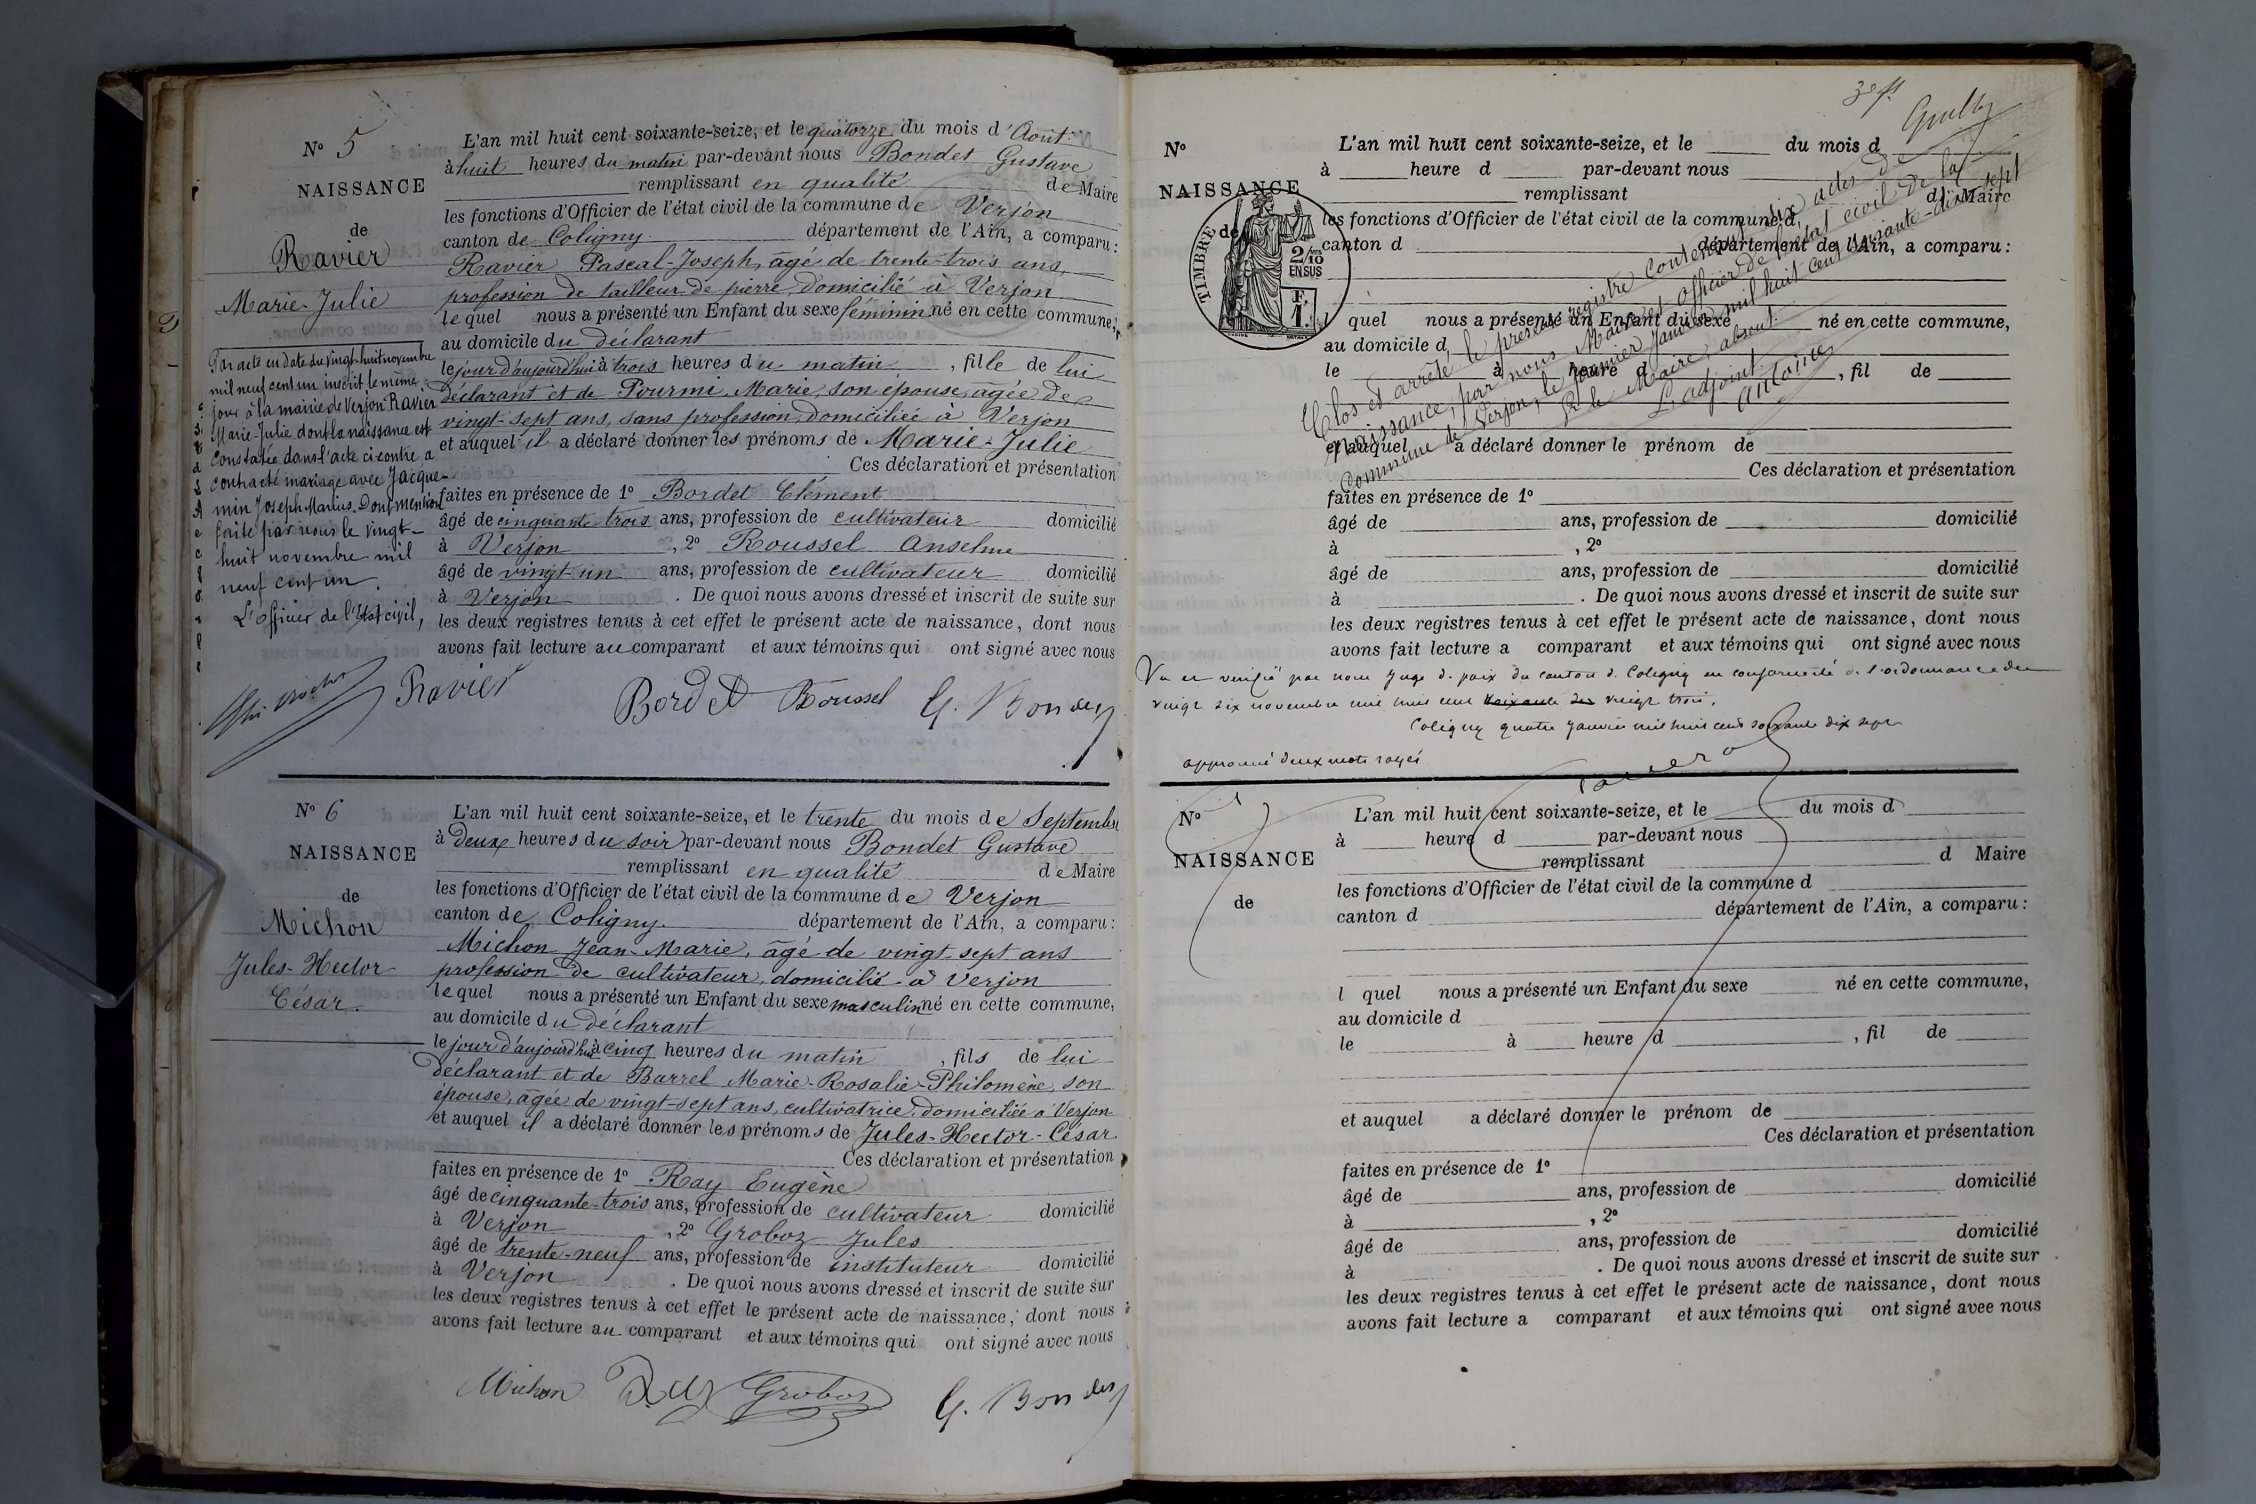 N° 5
NAISSANCE
de
Ravier
Marie-Julie
Par acte en date du vingt-huit novembre
mil neuf cent un inscrit le même
jour à la mairie de Verjon Ravier
Marie-Julie dont la naissance est
constatée dans l'acte ci-contre a
contracté mariage avec Jacque-
min Joseph Marius. Dont mention
faite par nous le vingt-
huit novembre mil
neuf cent un.
L'officier de l'Etat civil,
L'an mil huit cent soixante-seize, et le quatorze du mois d'Août
à huit heures du matin par-devant nous Bondet Gustave
remplissant en qualité de Maire
les fonctions d'Officier de l'état civil de la commune de Verjon
canton de Coligny département de l'Ain, a comparu:
Ravier Pascal-Joseph, âgé de trente-trois ans,
profession de tailleur de pierre, domicilié à Verjon
lequel nous a présenté un Enfant du sexe féminin né en cette commune,
au domicile du déclarant
le jour d'aujourd'hui à trois heures du matin, fille de lui
déclarant et de Pourmi Marie, son épouse, âgée de
vingt-sept ans, sans profession, domiciliée à Verjon
et auquel il a déclaré donner les prénoms de Marie-Julie
Ces déclaration et présentation
faites en présence de 1° Bordet Clément
âgé de cinquante-trois ans, profession de cultivateur domicilié
à Verjon, 2° Roussel Anselme
âgé de vingt-un ans, profession de cultivateur domicilié
à Verjon. De quoi nous avons dressé et inscrit de suite sur
les deux registres tenus à cet effet le présent acte de naissance, dont nous
avons fait lecture au comparant et aux témoins qui ont signé avec nous
Ravier Bordet Roussel G. Bondet
N° 6
NAISSANCE
de
Michon
Jules-Hector
César.
L'an mil huit cent soixante-seize, et le trente du mois de Septembre
à deux heures du soir par-devant nous Bondet Gustave
remplissant en qualité de Maire
les fonctions d'Officier de l'état civil de la commune de Verjon
canton de Coligny département de l'Ain, a comparu:
Michon Jean-Marie, âgé de vingt-sept ans
profession de cultivateur, domicilié à Verjon
lequel nous a présenté un Enfant du sexe masculin né en cette commune,
au domicile du déclarant
le jour d'aujourd'hui à cinq heures du matin, fils de lui
déclarant et de Barrel Marie-Rosalie-Philomène, son
épouse, âgée de vingt-sept ans, cultivatrice, domiciliée à Verjon
et auquel il a déclaré donner les prénoms de Jules-Hector-César
Ces déclaration et présentation
faites en présence de 1° Ray Eugène
âgé de cinquante-trois ans, profession de cultivateur domicilié
à Verjon, 2° Groboz Jules
âgé de trente-neuf ans, profession de instituteur domicilié
à Verjon. De quoi nous avons dressé et inscrit de suite sur
les deux registres tenus à cet effet le présent acte de naissance, dont nous
avons fait lecture au comparant et aux témoins qui ont signé avec nous
Michon Ray Groboz G. Bondet
N°
NAISSANCE
de
TIMBRE
2/10
EN SUS
F.
1.
L'an mil huit cent soixante-seize, et le du mois d
à heure d par-devant nous
remplissant d Maire
les fonctions d'Officier de l'état civil de la commune d
canton d département de l'Ain, a comparu:
l quel nous a présenté un Enfant du sexe né en cette commune,
au domicile d
le à heure d , fil de
et auquel a déclaré donner le prénom de
Ces déclaration et présentation
faites en présence de 1°
âgé de ans, profession de domicilié
à , 2°
âgé de ans, profession de domicilié
à . De quoi nous avons dressé et inscrit de suite sur
les deux registres tenus à cet effet le présent acte de naissance, dont nous
avons fait lecture a comparant et aux témoins qui ont signé avec nous
Clos et arrêté le présent registre contenant six actes de
Naissance, par nous Maire et officier de l'état civil de la
Commune de Verjon, le premier janvier mil huit cent soixante-dix-sept
P. le Maire, absent
L'adjoint
Antoine
Vu et vérifié par nous Juge de paix du canton de Coligny en conformité de l'ordonnance du
vingt six novembre mil huit cent vingt trois.
Coligny quatre janvier mil huit cent soixante dix sept
approuvé deux mots rayés
N°
NAISSANCE
de
L'an mil huit cent soixante-seize, et le du mois d
à heure d par-devant nous
remplissant d Maire
les fonctions d'Officier de l'état civil de la commune d
canton d département de l'Ain, a comparu:
l quel nous a présenté un Enfant du sexe né en cette commune,
au domicile d
le à heure d , fil de
et auquel a déclaré donner le prénom de
Ces déclaration et présentation
faites en présence de 1°
âgé de ans, profession de domicilié
à , 2°
âgé de ans, profession de domicilié
à . De quoi nous avons dressé et inscrit de suite sur
les deux registres tenus à cet effet le présent acte de naissance, dont nous
avons fait lecture a comparant et aux témoins qui ont signé avec nous